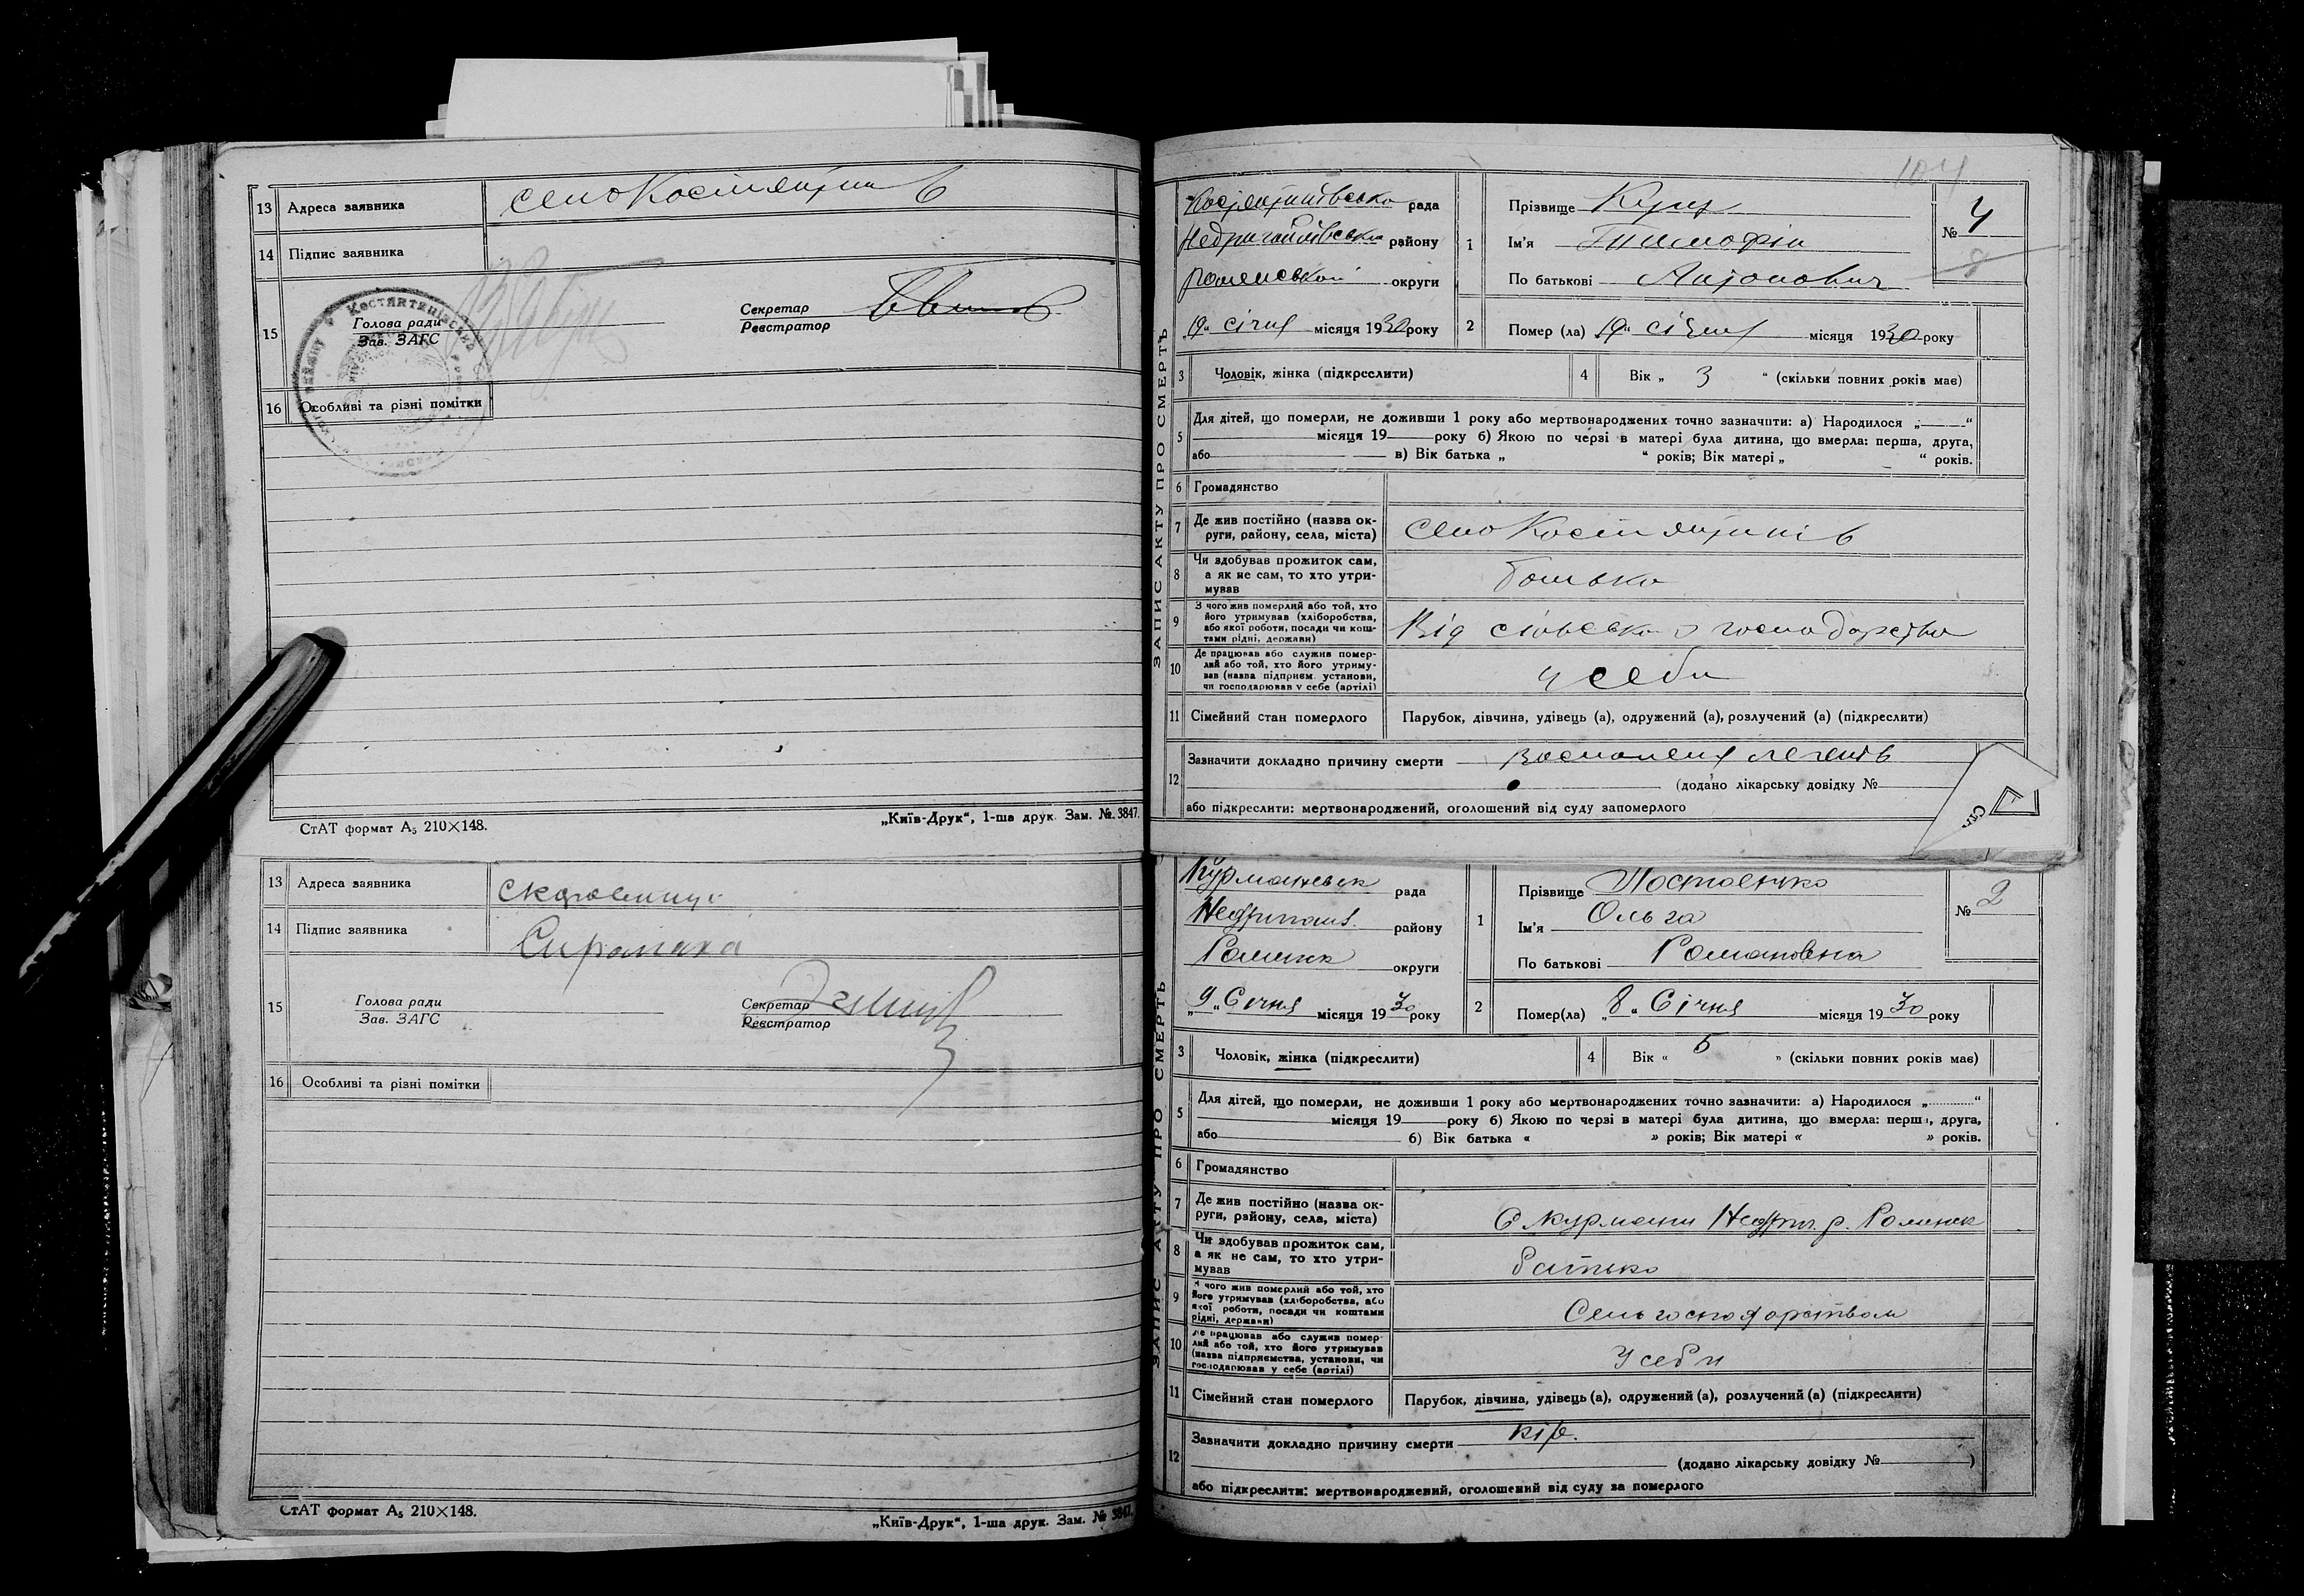 13 Адреса заявника село Костянтинів
14 Підпис заявника
15 Голова ради
Зав. ЗАГС
Секретар
Реєстратор
16 Особливі та різні помітки
СтАТ формат А₅ 210×148.
„Київ-Друк“, 1-ша друк. Зам. №. 3847.
13 Адреса заявника
14 Підпис заявника
15 Голова ради
Зав. ЗАГС
Секретар
Реєстратор
16 Особливі та різні помітки
СтАТ формат А₅ 210×148.
„Київ-Друк“, 1-ша друк. Зам. № 3847.
104
ЗАПИС АКТУ ПРО СМЕРТЬ
рада
району
округи
19 січня місяця 1930 року
1 Прізвище
Ім'я Тимофій
По батькові Антонович
№ 4
8
2 Помер (ла) 19 січня місяця 1930 року
3 Чоловік, жінка (підкреслити)
4 Вік „ 3 “ (скільки повних років має)
5 Для дітей, що померли, не доживши 1 року або мертвонароджених точно зазначити: а) Народилося „ “
місяця 19 року б) Якою по черзі в матері була дитина, що вмерла: перша, друга,
або в) Вік батька „ “ років; Вік матері „ “ років.
6 Громадянство
7 Де жив постійно (назва ок-
руги, району, села, міста) село Костянтинів
8 Чи здобував прожиток сам,
а як не сам, то хто утри-
мував батько
9 З чого жив померлий або той, хто
його утримував (хліборобства,
або якої роботи, посади чи кош-
тами рідні, держави) Від господарства
10 Де працював або служив помер-
лий або той, хто його утриму-
вав (назва підприєм. установи,
чи господарював у себе (артілі) у себи
11 Сімейний стан померлого Парубок, дівчина, удівець (а), одружений (а), розлучений (а) (підкреслити)
12 Зазначити докладно причину смерти легенів
(додано лікарську довідку №
або підкреслити: мертвонароджений, оголошений від суду запомерлого
ЗАПИС АКТУ ПРО СМЕРТЬ
рада
району
округи
9 Січня місяця 1930 року
1 Прізвище
Ім'я Ольга
По батькові Романовна
№ 2
2 Помер(ла) „8“ Січня місяця 1930 року
3 Чоловік, жінка (підкреслити)
4 Вік « 5 » (скільки повних років має)
5 Для дітей, що померли, не доживши 1 року або мертвонароджених точно зазначити: а) Народилося „ “
місяця 19 року б) Якою по черзі в матері була дитина, що вмерла: перша, друга,
або б) Вік батька « » років; Вік матері « » років.
6 Громадянство
7 Де жив постійно (назва ок-
руги, району, села, міста) С Курмани р.
8 Чи здобував прожиток сам,
а як не сам, то хто утри-
мував батько
9 З чого жив померлий або той, хто
його утримував (хліборобства, або
якої роботи, посади чи коштами
рідні, держави) господарством
10 Де працював або служив помер-
лий або той, хто його утримував
(назва підприємства, установи, чи
господарював у себе (артілі) У себи
11 Сімейний стан померлого Парубок, дівчина, удівець (а), одружений (а), розлучений (а) (підкреслити)
12 Зазначити докладно причину смерти кір.
(додано лікарську довідку № )
або підкреслити: мертвонароджений, оголошений від суду за померлого